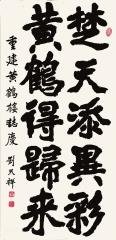 楚天添異彩
黄鶴得歸来
重建黄鶴樓誌慶
劉天祥